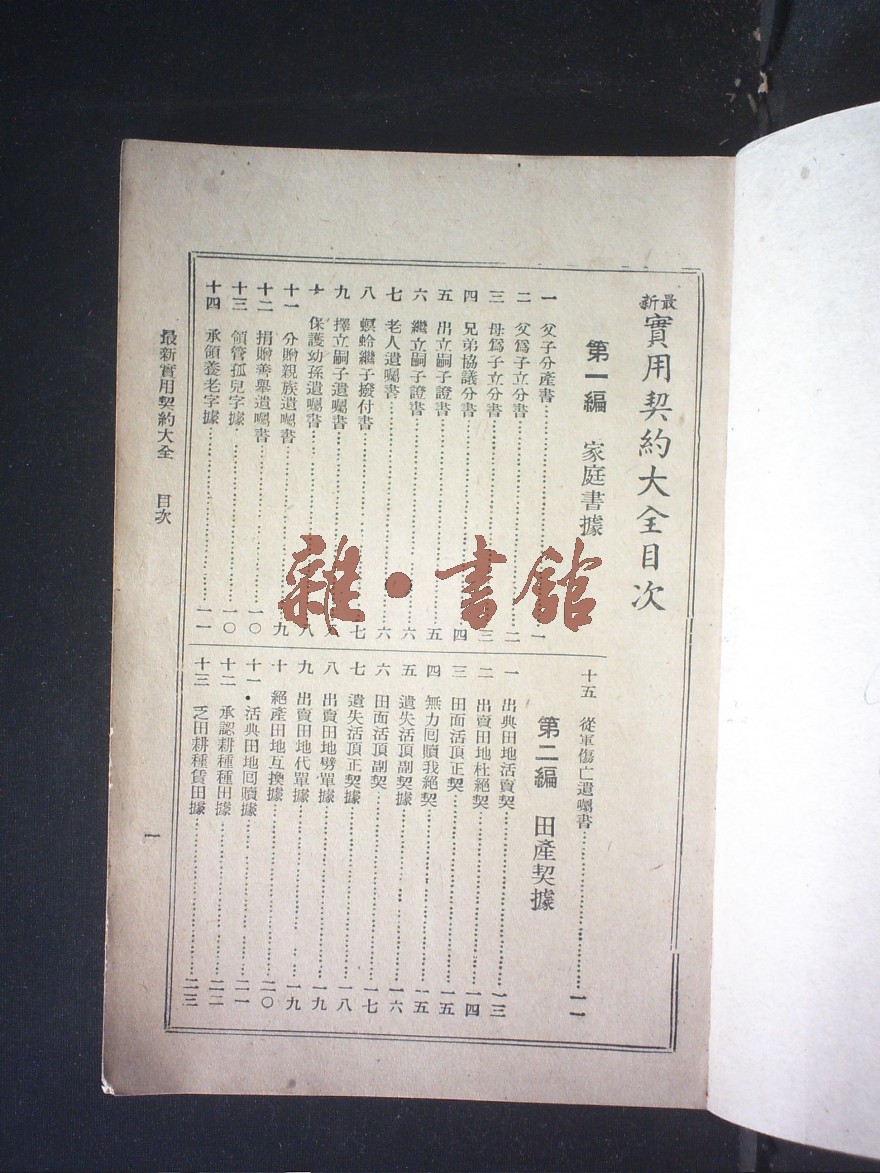 最新實用契約大全目次
第一編 家庭書據
一 父子分產書 一
二 父爲子立分書 二
三 母爲子立分書 三
四 兄弟協議分書 四
五 出立嗣子證書 五
六 繼立嗣子證書 六
七 老人遺囑書 六
八 螟蛉繼子撥付書 七
九 擇立嗣子遺囑書
十 保護幼孫遺囑書 八
十一 分贈親族遺囑書 九
十二 捐贈善舉遺囑書 一〇
十三 領管孤兒字據 一〇
十四 承領養老字據 一一
十五 從軍傷亡遺囑書 一一
第二編 田產契據
一 出典田地活賣契 一三
二 出賣田地杜絕契 一四
三 田面活頂正契 一五
四 無力回贖我絕契 一五
五 遺失活頂副契據 一六
六 田面活頂副契 一七
七 遺失活頂正契據 一八
八 出賣田地劈單據 一九
九 出賣田地代單據 一九
十 絕產田地互換據 二〇
十一 活典田地回贖據 二一
十二 承認耕種種田據 二二
十三 乏田耕種賃田據 二三
最新實用契約大全 目次
一
雜·書館